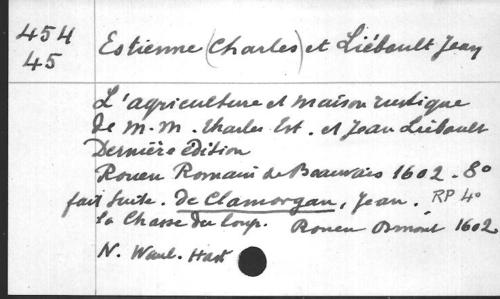 454
45
Estienne (Charles) et Liébault Jean
L'agriculture et maison rustique
de M.M. Charles Est. et Jean Liébault
Dernière édition
Rouen Romain de Beauvais 1602. 8º
fait suite. de Clamorgan, Jean. RP 4º
La Chasse du loup. Rouen Osmont 1602
N.